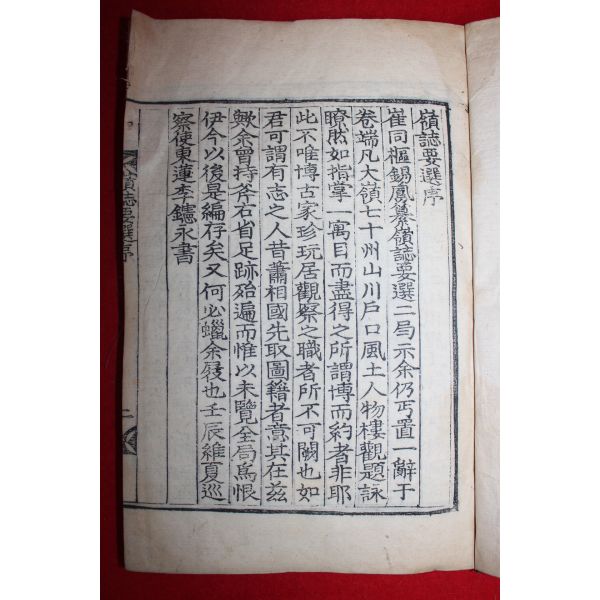 嶺誌要選序
崔同樞錫鳳纂嶺誌要選二局示余仍丐置一辭于
卷端凡大嶺七十州山川戶口風土人物樓觀題詠
瞭然如指掌一寓目而盡得之所謂博而約者非耶
此不唯博古家珍玩居觀察之職者所不可闕也如
君可謂有志之人昔蕭相國先取圖籍者意其在茲
歟余曾持斧右省足跡殆遍而惟以未覽全局爲恨
伊今以後具編存矣又何必蠟余屐也壬辰維夏巡
察使東蓮李𨯶永書
嶺誌要選序
二